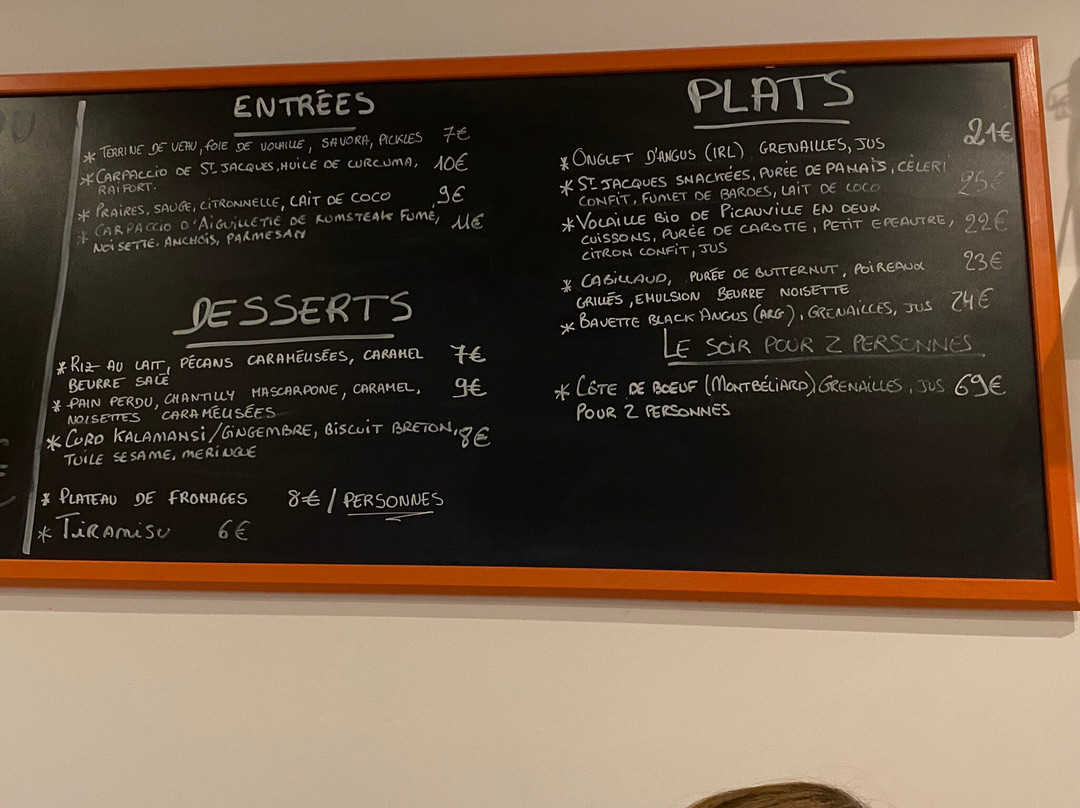 ENTRÉES
* TERRINE DE VEAU, FOIE DE VOLAILLE, SAVORA, PICKLES 7€
* CARPACCIO DE ST JACQUES, HUILE DE CURCUMA, 10€
RAIFORT.
* PRAIRES, SAUGE, CITRONNELLE, LAIT DE COCO 9€
* CARPACCIO D'AIGUILLETTE DE RUMSTEAK FUMÉ, 11€
NOISETTE, ANCHOIS, PARMESAN
DESSERTS
* RIZ AU LAIT, PÉCANS CARAMÉLISÉES, CARAMEL 7€
BEURRE SALÉ
* PAIN PERDU, CHANTILLY MASCARPONE, CARAMEL, 9€
NOISETTES CARAMÉLISÉES
* CURD KALAMANSI/GINGEMBRE, BISCUIT BRETON, 8€
TUILE SESAME, MERINGUE
* PLATEAU DE FROMAGES 8€ / PERSONNES
* TIRAMISU 6€
PLATS
* ONGLET D'ANGUS (IRL) GRENAILLES, JUS 21€
* ST JACQUES SNACKÉES, PURÉE DE PANAIS, CÉLERI
CONFIT, FUMET DE BARDES, LAIT DE COCO 25€
* VOLAILLE BIO DE PICAUVILLE EN DEUX
CUISSONS, PURÉE DE CAROTTE, PETIT EPEAUTRE, 22€
CITRON CONFIT, JUS
* CABILLAUD, PURÉE DE BUTTERNUT, POIREAUX 23€
GRILLÉS, EMULSION BEURRE NOISETTE
* BAVETTE BLACK ANGUS (ARG), GRENAILLES, JUS 24€
LE SOIR POUR 2 PERSONNES
* CÔTE DE BOEUF (MONTBÉLIARD) GRENAILLES, JUS 69€
POUR 2 PERSONNES